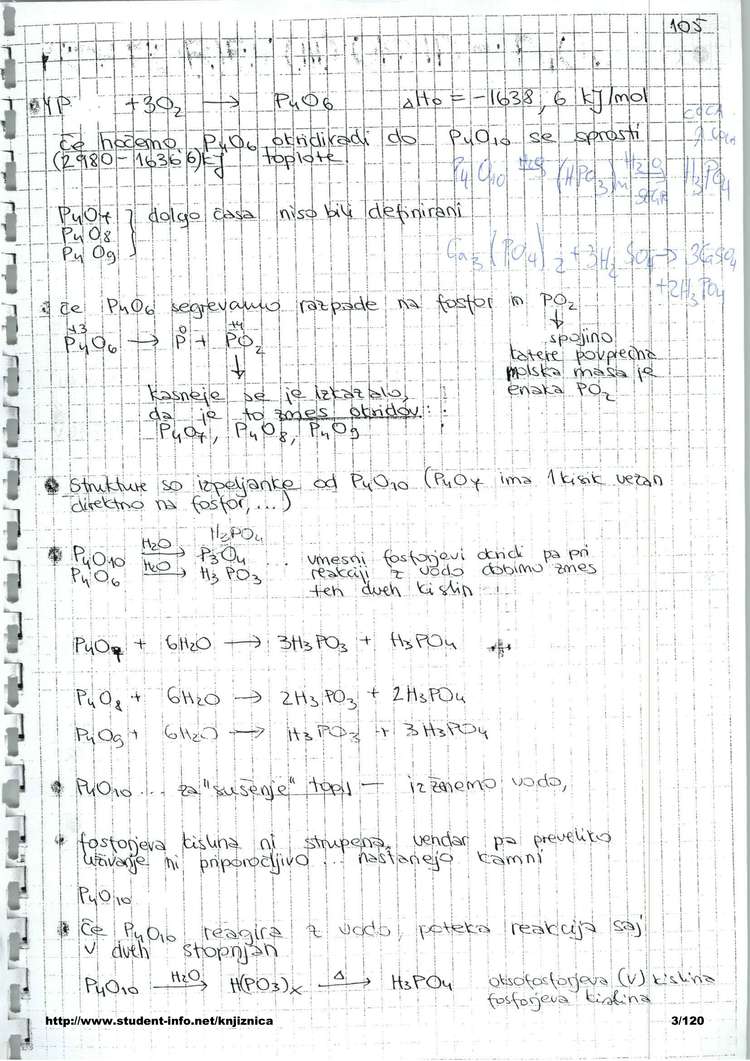 105
4P + 3O2 → P4O6 ΔH0 = -1638,6 kJ/mol
če hočemo P4O6 oksidirati do P4O10 se sprosti
(2980-1636,6)kJ toplote
P4O10 H2O (HPO3)n H2O H3PO4
P4O7 } dolgo časa niso bili definirani
P4O8
P4O9
Ca3(PO4)2 + 3H2SO4 → 3CaSO4
+2H3PO4
če P4O6 segrevamo razpade na fosfor in PO2
+3 0 +4
P4O6 → P + PO2
↓ spojino
katere povprečna
molska masa je
enaka PO2
↓
kasneje se je izkazalo,
da je to zmes oksidov:
P4O7, P4O8, P4O9
• strukture so izpeljanke od P4O10 (P4O7 ima 1 kisik vezan
direktno na fosfor,...)
H2PO4
• P4O10 H2O→ P3O4 ... vmesni fosforjevi oksidi pa pri
P4O6 H2O→ H3PO3 reakciji z vodo dobimo zmes
teh dveh kislin
P4O7 + 6H2O → 3H3PO3 + H3PO4
P4O8 + 6H2O → 2H3PO3 + 2H3PO4
P4O9 + 6H2O → H3PO3 + 3H3PO4
• P4O10 ... za "sušenje" topil — izžnemo vodo,
• fosforjeva kislina ni strupena, vendar pa preveliko
uživanje ni priporočljivo ... nastanejo kamni
P4O10
• če P4O10 reagira z vodo, poteka reakcija saj
v dveh stopnjah
P4O10 H2O→ H(PO3)x Δ→ H3PO4 oksofosforjeva (V) kislina
fosforjeva kislina
http://www.student-info.net/knjiznica 3/120